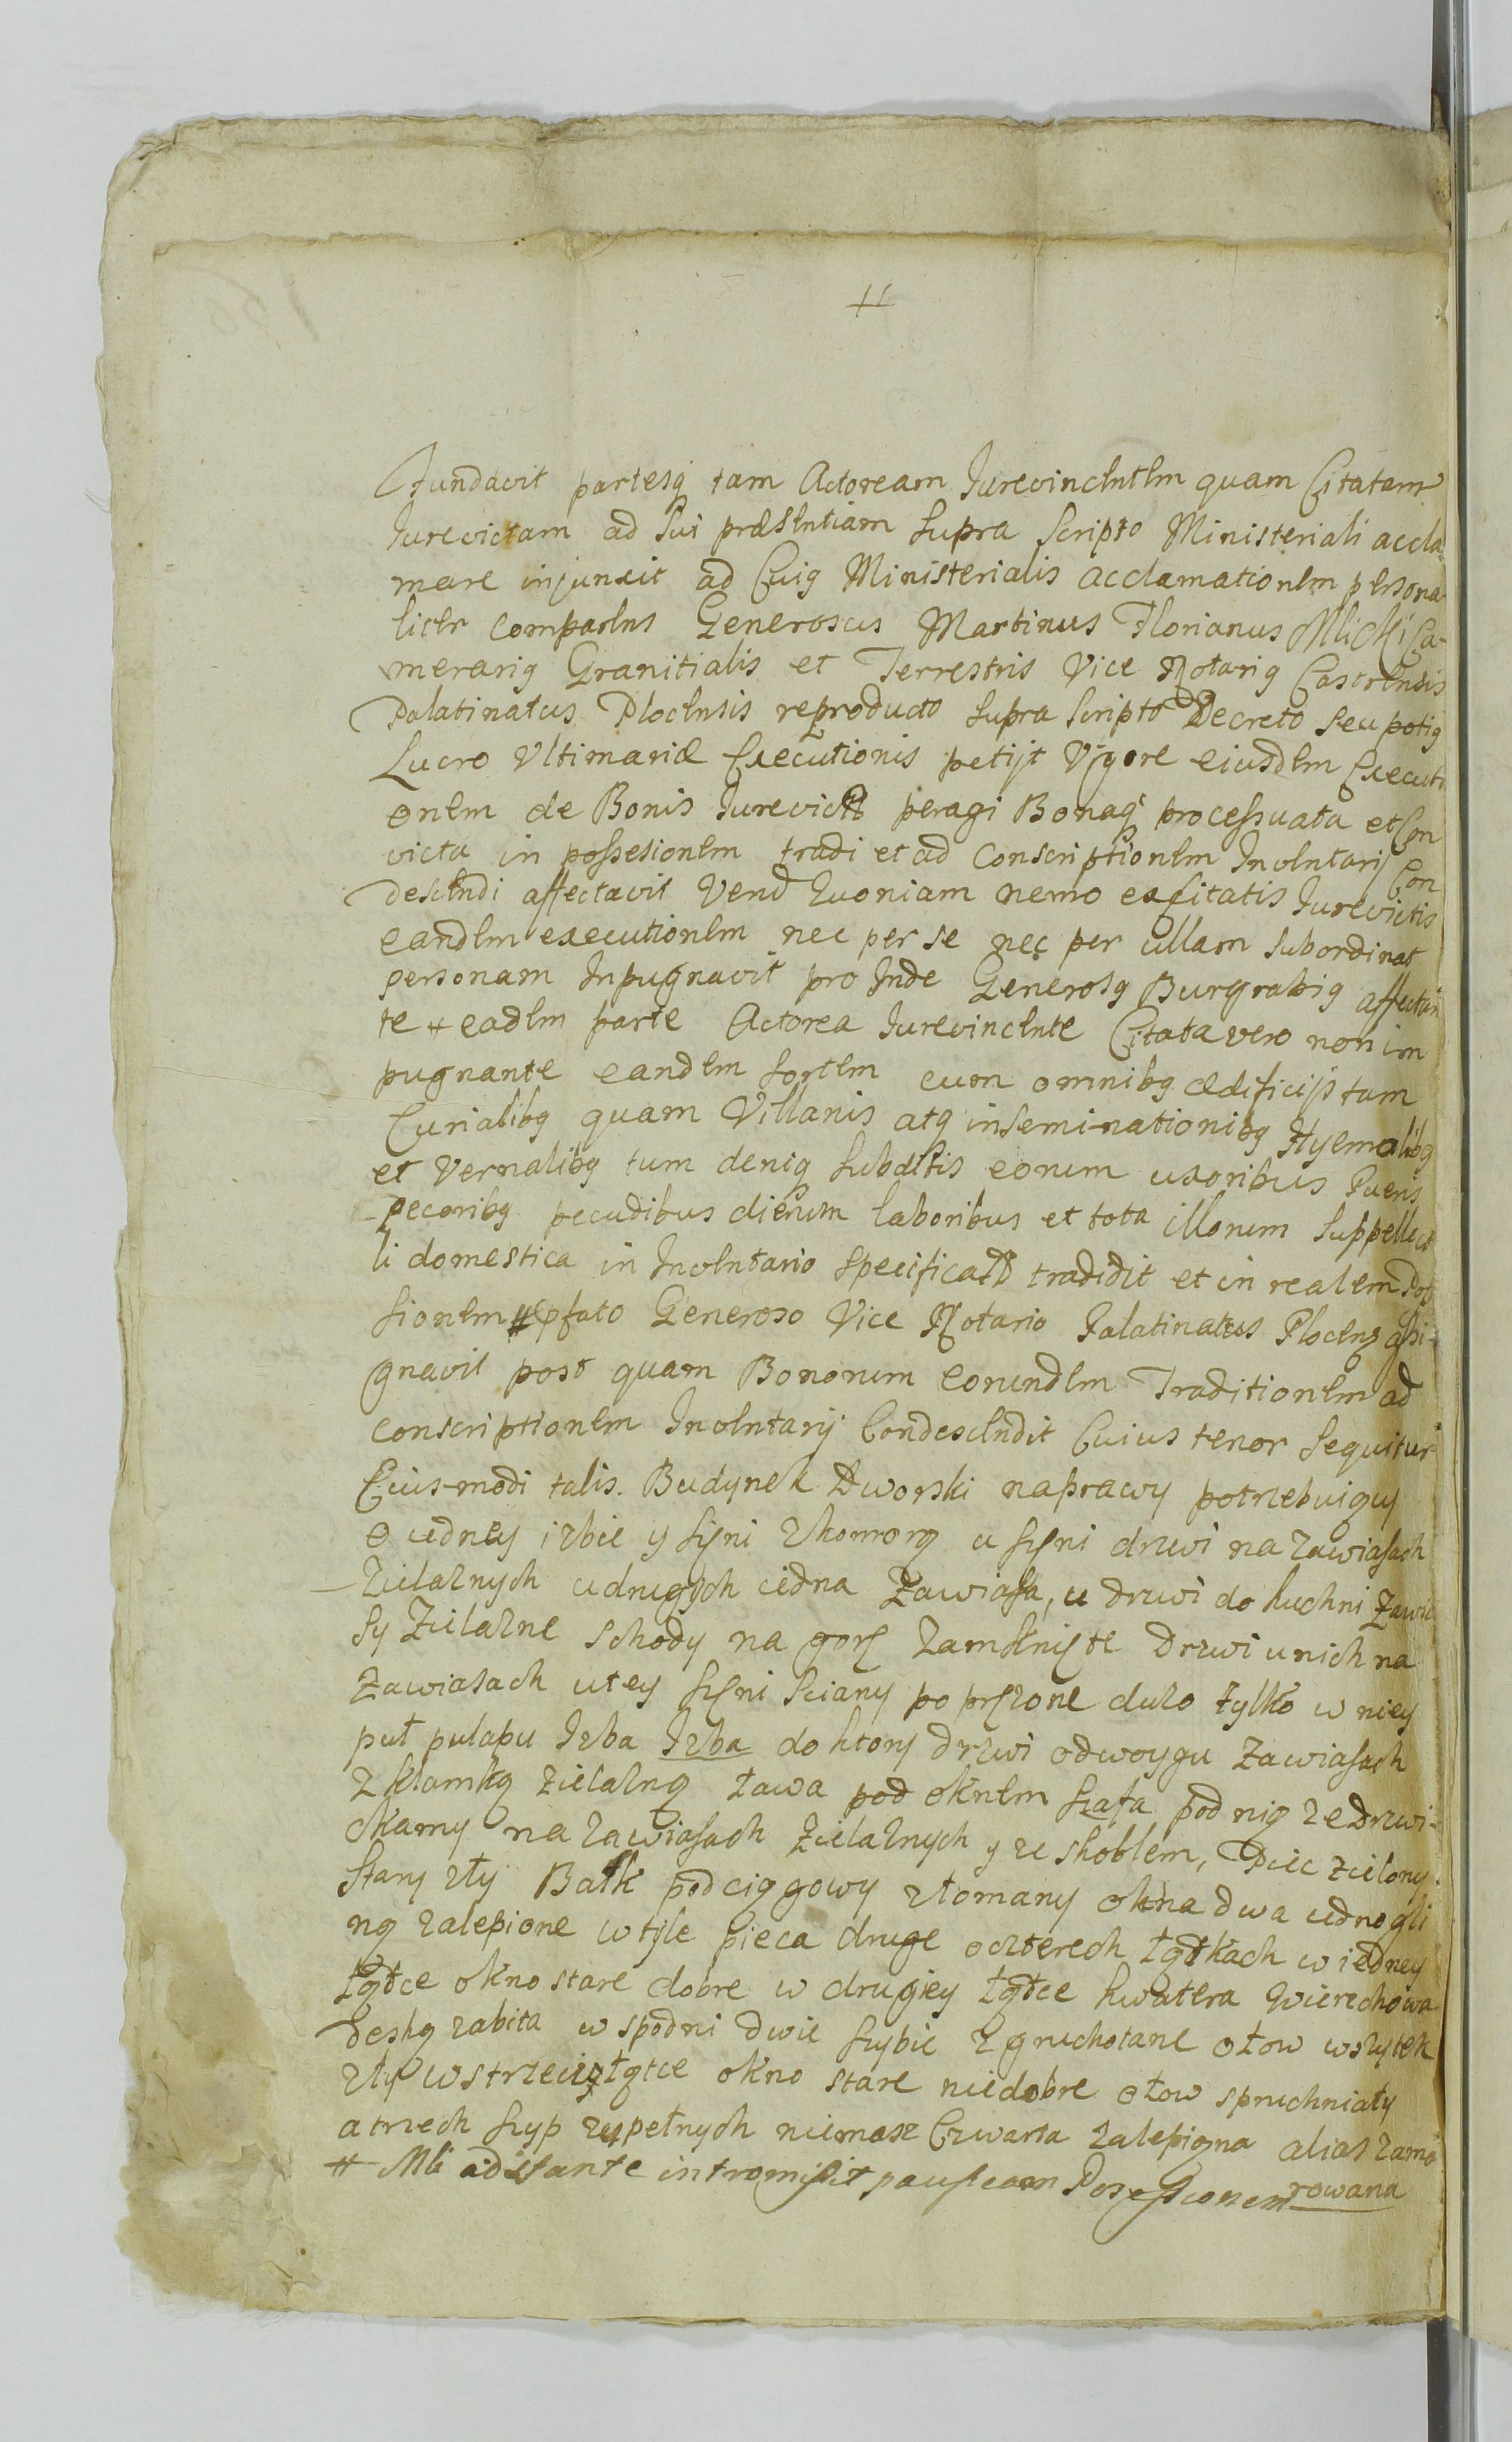 #
Fundavit partesq tam Actoream Jurevincentem quam Citatam
Jurevictam ad Sui præsentiam supra Scripto Ministeriali accla
mare injunxit ad Cuiq Ministerialis acclamationem persona-
liter comparens Generosus Martinus Florianus Mlicki Ca-
merariq Granitialis et Terrestris Vice Notariq Castrensis
Palatinatus Plocensis reproducto supra scripto Decreto seu potiq
Lucro Ultimariæ Executionis petijt Vigore eiusdem Executi
onem de Bonis Jurevict peragi Bonaq processuata et Con
victa in possesionem tradi et ad Conscriptionem Inventarij Con
descendi affectavit Quoniam nemo ex Citatis Jurevictis
eandem executionem nec per se nec per ullam subordinat
personam Inpugnavit pro Inde Generosq Burgrabiq affectan
te # eadem parte Actorea Jurevincente Citata vero non im
pugnante eandem sortem cum omnibq ædificijs tam
Curialibq quam Villanis atq inseminationibq Hyemalibq
et Vernalibq tum deniq subditis eorum uxoribus Pueris
pecoribq pecudibus dierum laboribus et tota illorum suppellect
li domestica in Inventario specificat tradidit et in realem Pos
sionem # pfato Generoso Vice Notario Palatinatus Plocens assi-
gnavit post quam Bonorum eorundem Traditionem ad
conscriptionem Inventarij Condescendit Cuius tenor sequitur
Eius-modi talis. Budynek Dworski naprawy potrzebuiący
o iedney izbie y sięni zkomorą u sięni drzwi na zawiasach
żielaznych udrugich iedna zawiasa, u drzwi do kuchni zawia
sy żielazne schody na gorę zamknięte Drzwi unich na
zawiasach utey sięni sciany po pręzone duzo tylko w niey
puł pulapu Izba Izba do ktory drzwi odwoygu zawiasach
z klamką zielazną ława pod oknem szafa pod nią ze Drzwi-
ckamy na zawiasach żielaznych y ze skoblem, Piec zielony
stary zły Balk podciągowy złomany okna dwa iedno gli
ną zalepione wtyle pieca druge oczterech łątkach w iedney
łątce okno stare dobre w drugiey łątce kwatera Wierzchowa
deską zabita w spodni dwie szybie zgruchotane ołow wszytek
zły wstrzeciy łątce okno stare niedobre ołow spruchniały
a trzech szyp zupełnych niemasz Czwarta zalepiona alias zamo
rowana
# Mli adstante intromisit Possessionem